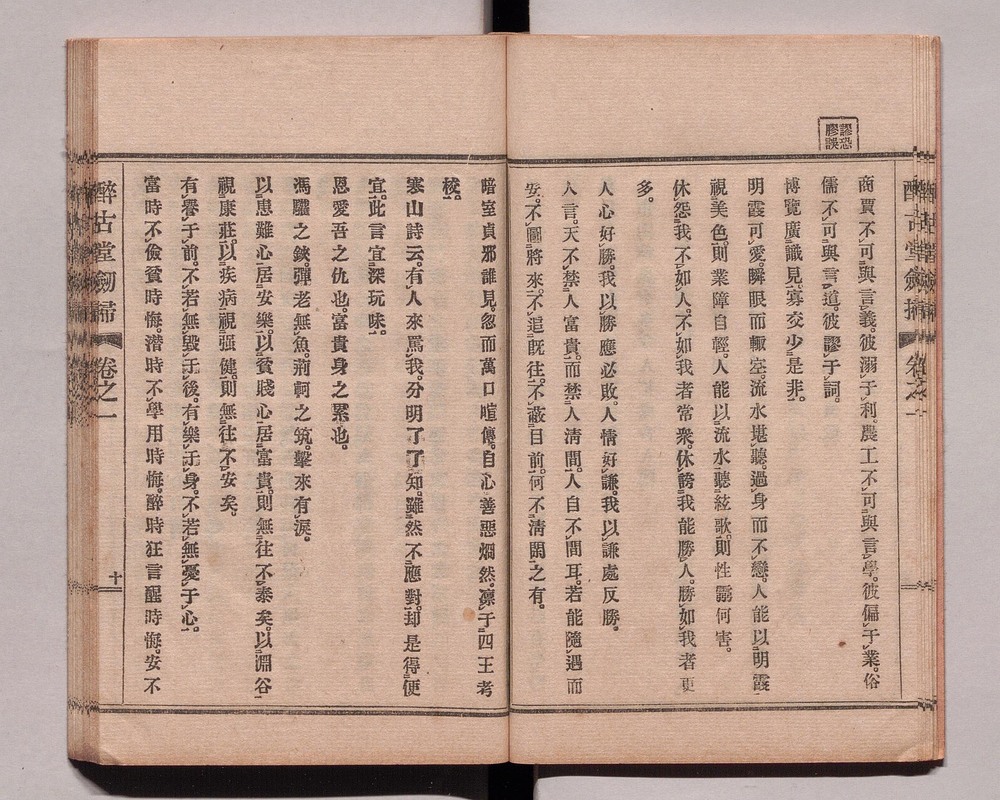 謬恐
膠誤
商賈不可與言義。彼溺于利。農工不可與言學。彼偏于業。俗
儒不可與言道。彼謬于詞。
博覽廣識見。寡交少是非。
明霞可愛。瞬眼而輒空。流水堪聽。過身而不戀。人能以明霞
視美色。則業障自輕。人能以流水聽絃歌。則性靈何害。
休怨我不如人。不如我者常衆。休誇我能勝人。勝如我者更
多。
人心好勝。我以勝應必敗。人情好謙。我以謙處反勝。
人言。天不禁人富貴。而禁人淸間。人自不間耳。若能隨遇而
安。不圖將來。不追既往。不蔽目前。何不淸閑之有。
暗室貞邪誰見。忽而萬口喧傳。自心善惡烱然。凜于四王考
校。
寒山詩云。有人來罵我。分明了了知。雖然不應對。却是得便
宜。此言宜深玩味。
恩愛吾之仇也。富貴身之累也。
馮驩之鋏。彈老無魚。荊軻之筑。擊來有淚。
以患難心居安樂。以貧賤心居富貴。則無往不泰矣。以淵谷
視康莊。以疾病視强健。則無往不安矣。
有譽于前。不若無毀于後。有樂于身。不若無憂于心。
富時不儉貧時悔。潜時不學用時悔。醉時狂言醒時悔。安不
醉古堂劒掃
卷之一
十